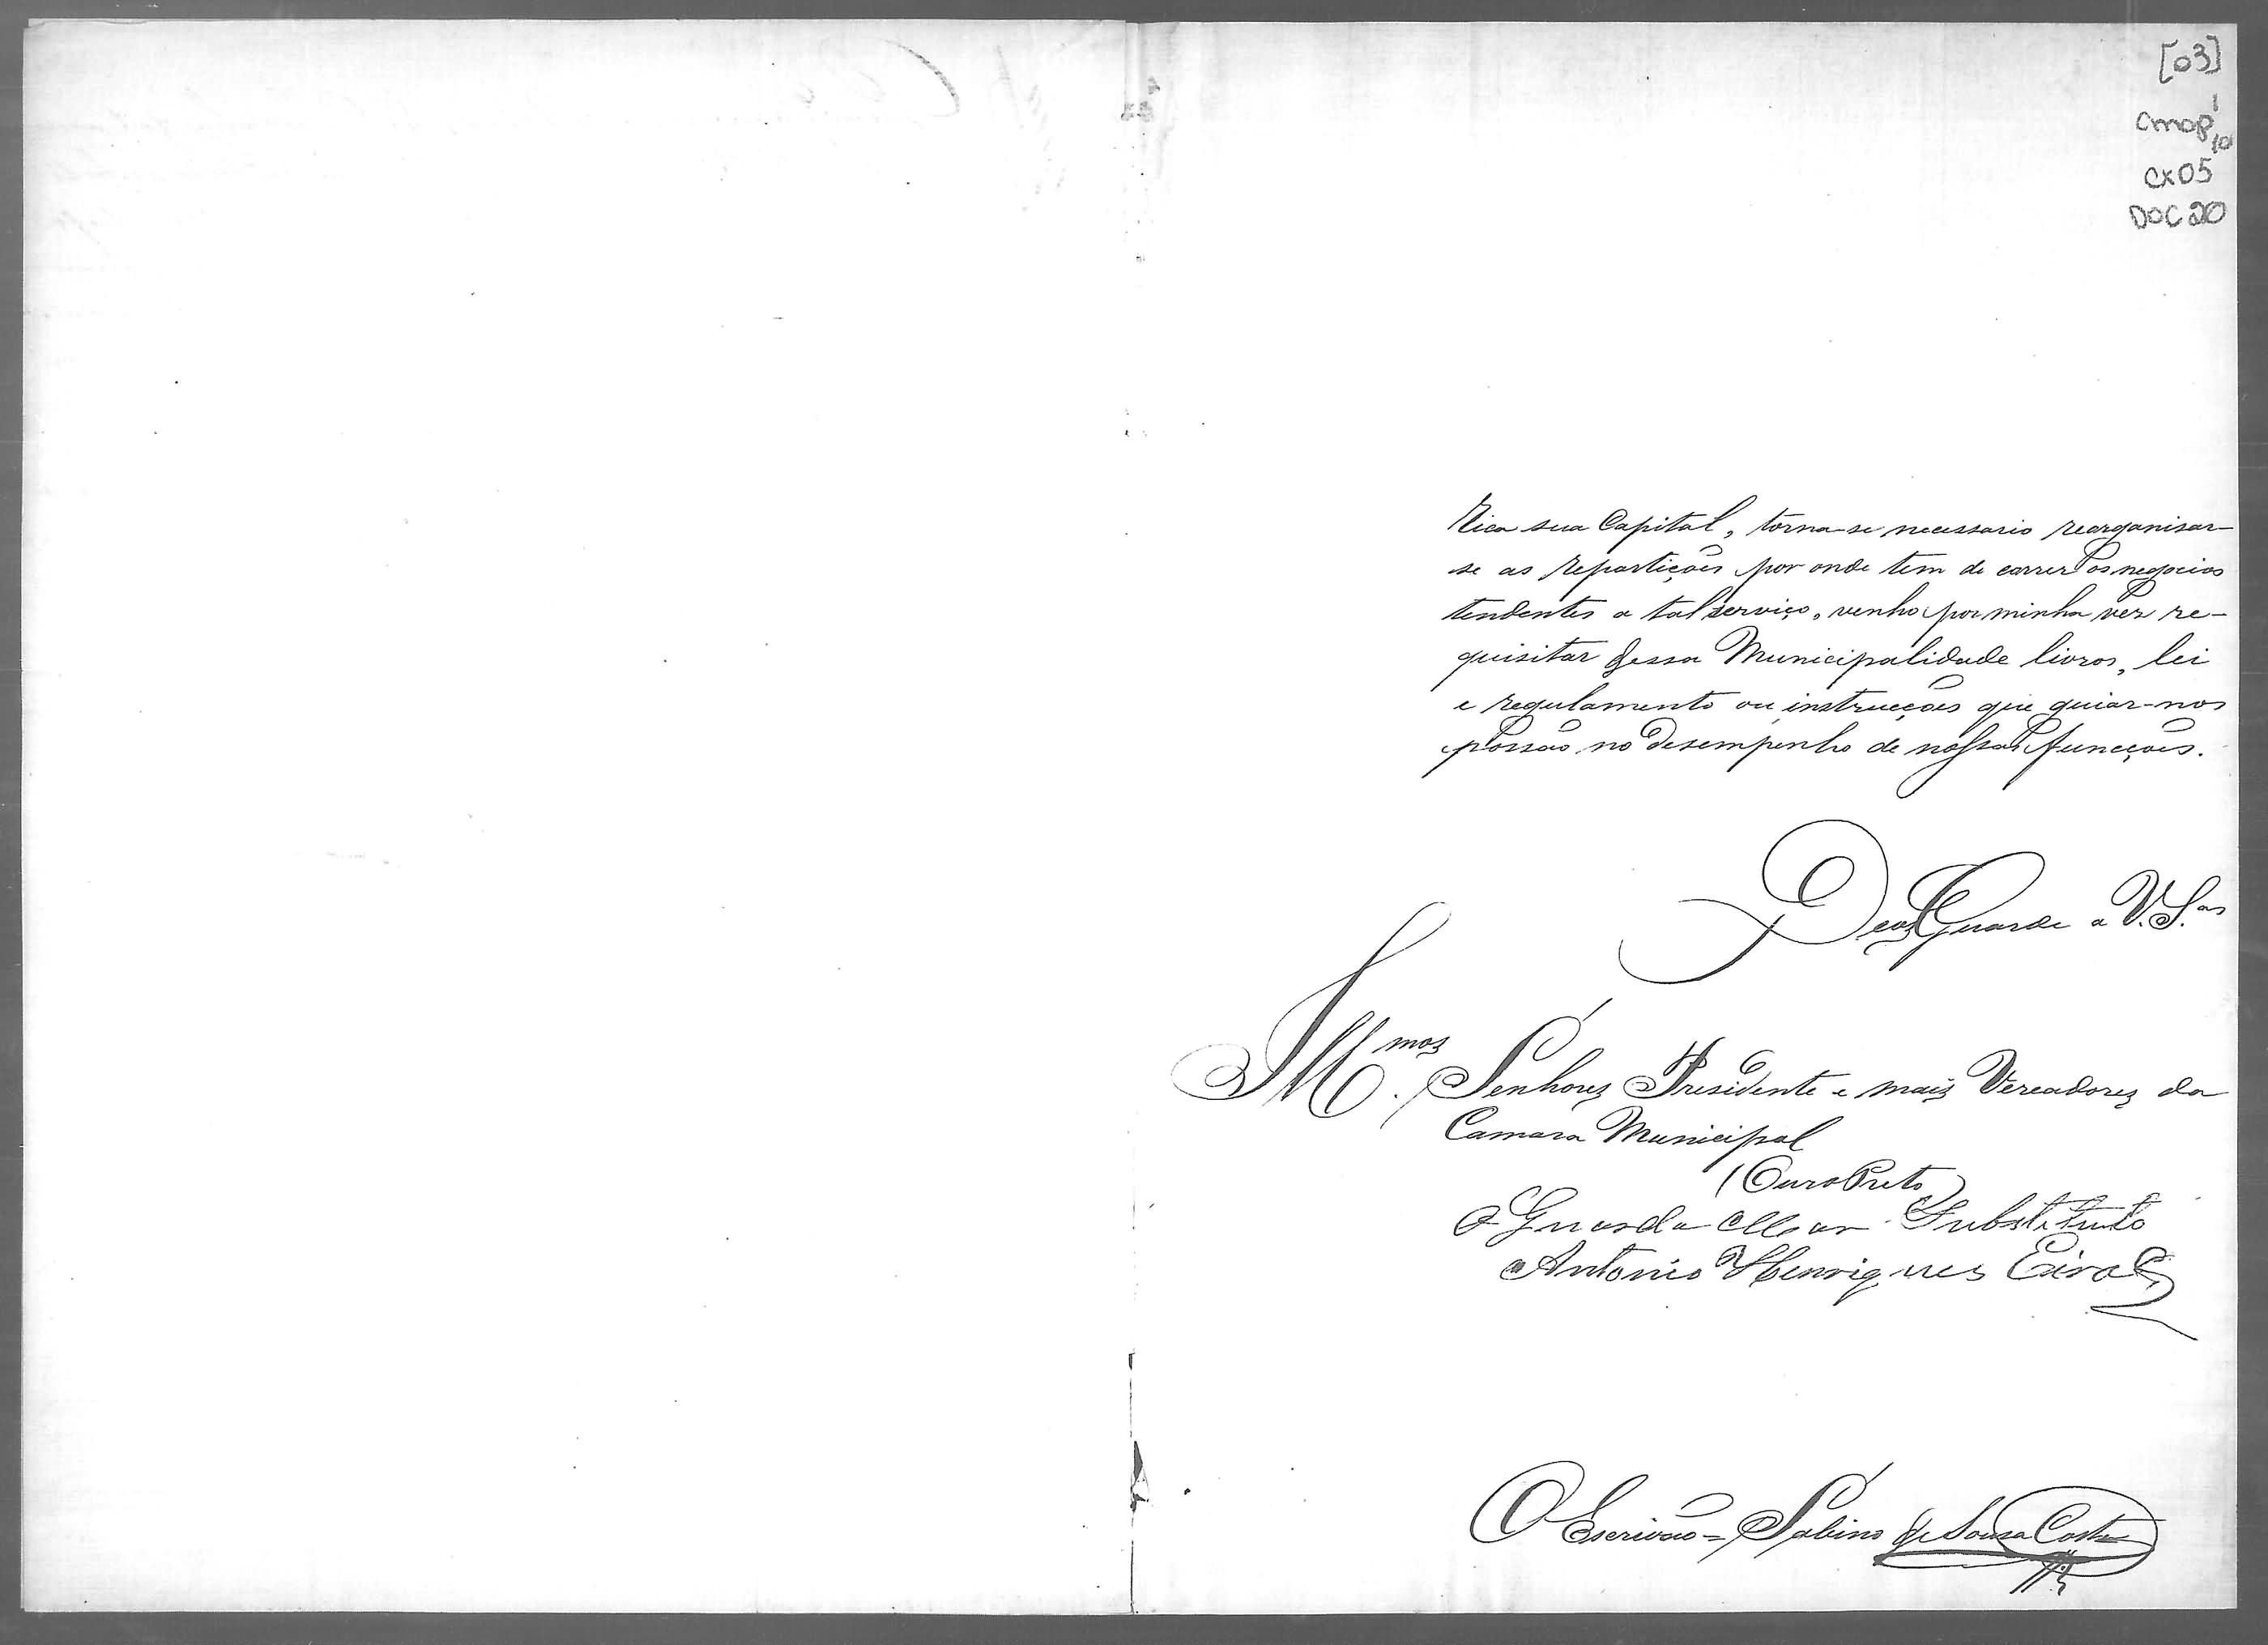 [03]
CMOP
CX05
DOC 20
rica sua Capital, torna-se necessario reorganisar-
se as repartições por onde tem de correr os negocios
tendentes a tal serviço, venho por minha vez re-
quisitar dessa Municipalidade livros, lei
e regulamento ou instrucções que guiar-nos
possão no desempenho de nossas funcções.
Deos Guarde a V. S.as
Ill.mos Senhores Presidente e mais Vereadores da
Camara Municipal
(Ouro Preto)
O Guarda Mor Substituto
Antonio Henriques
O Escrivão = Sabino de Sousa Costa